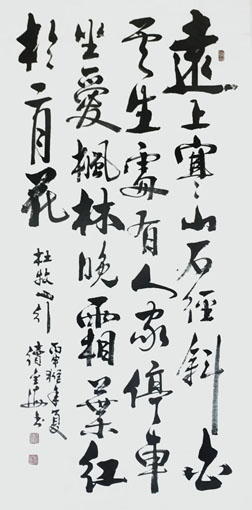 遠上寒山石徑斜白
云生處有人家停車
坐愛楓林晚霜葉紅
於二月花
杜牧山行
年夏
書